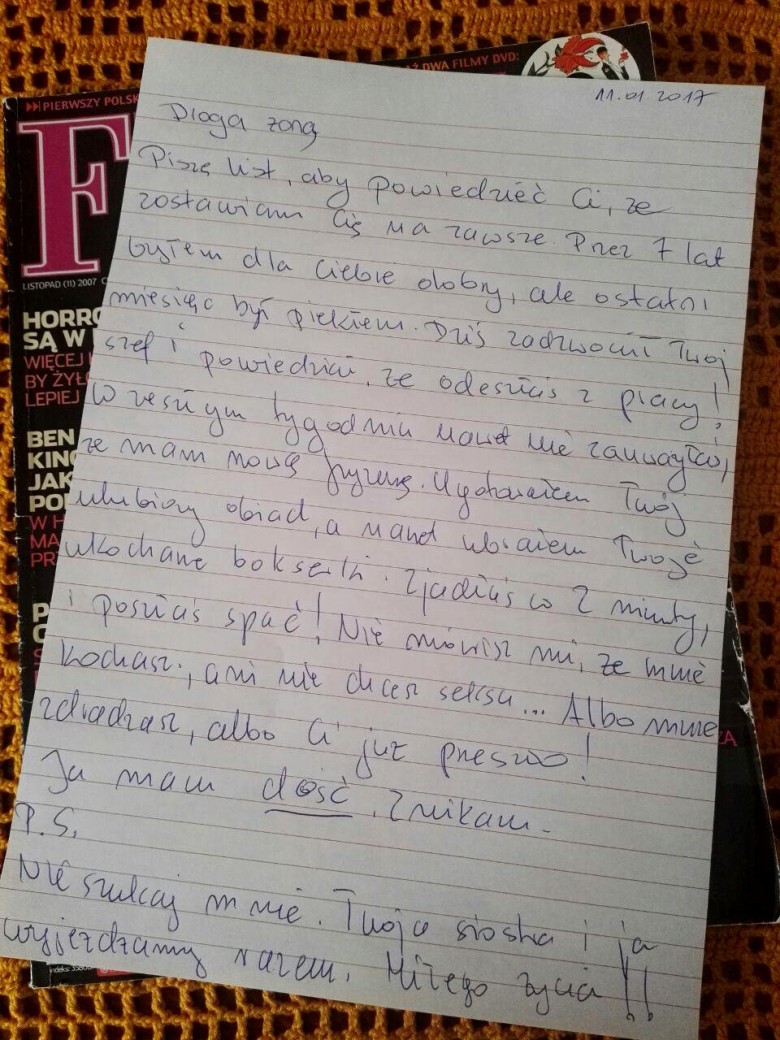 ▶▶I PIERWSZY POLSK
Ż DWA FILMY DVD:
F
LISTOPAD (11) 2007 C
HORRO
SĄ W
WIĘCEJ
BY ŻYŁO
LEPIEJ
BEN
KING
JAK
POL
W H
MA
PR
P
indeks 3380
11.01.2017
Droga żono
Piszę list, aby powiedzieć Ci, że
zostawiam Cię na zawsze. Przez 7 lat
byłem dla Ciebie dobry, ale ostatni
miesiąc był piekłem. Dziś zadzwonił Twój
szef i powiedział, że odeszłaś z pracy!
W zeszłym tygodniu nawet nie zauważyłaś,
że mam nową fryzurę. Ugotowałem Twój
ulubiony obiad, a nawet ubrałem Twoje
ukochane bokserki. Zjadłaś w 2 minuty,
i poszłaś spać! Nie mówisz mi, że mnie
kochasz, ani nie chcesz seksu... Albo mnie
zdradzasz, albo Ci już przeszło!
Ja mam dość. Znikam.
P.S.
Nie szukaj mnie. Twoja siostra i ja
wyjeżdżamy razem. Miłego życia!!